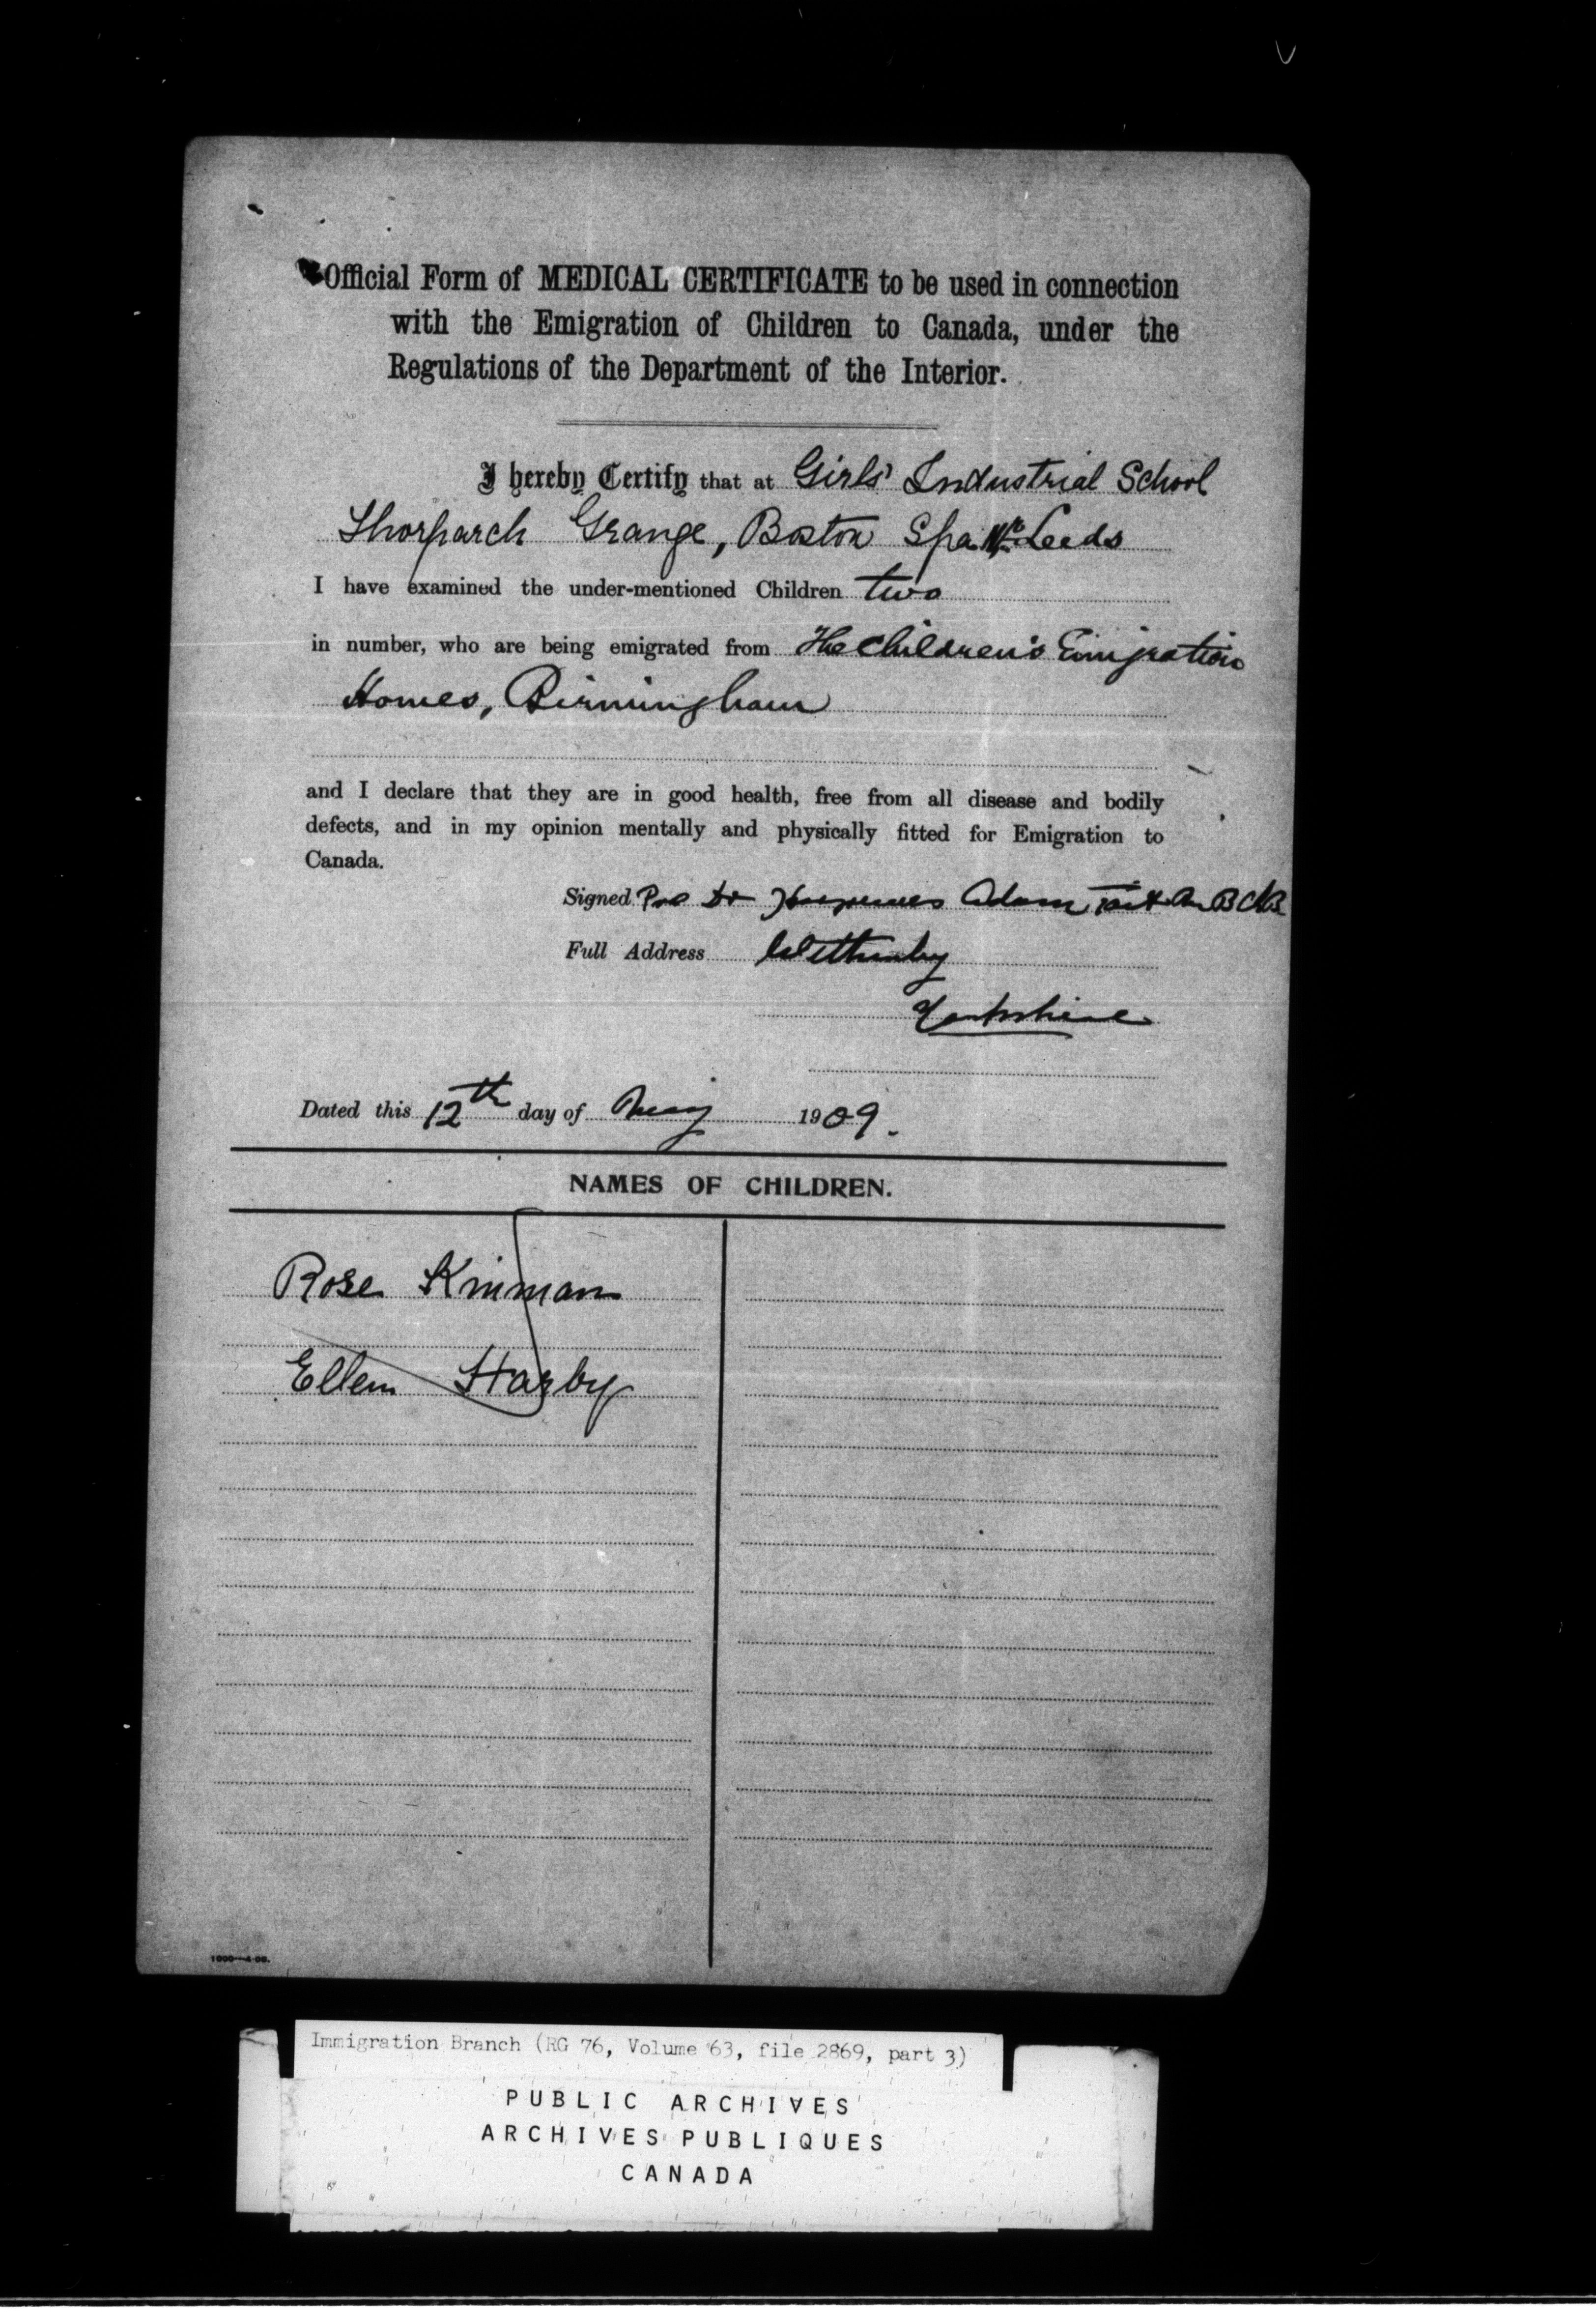 Official Form of MEDICAL CERTIFICATE to be used in connection
with the Emigration of Children to Canada, under the
Regulations of the Department of the Interior.
I hereby Certify that at Girls' Industrial School
Thorparch Grange, Boston Spa Nr Leeds
I have examined the under-mentioned Children two
in number, who are being emigrated from The Children's Emigration
Homes, Birmingham
and I declare that they are in good health, free from all disease and bodily
defects, and in my opinion mentally and physically fitted for Emigration to
Canada.
Signed Pro Dr Adam
Full Address Wetherby
Yorkshire
Dated this 12th day of May 1909.
NAMES OF CHILDREN.
Rose Kinman
Ellen Harby
Immigration Branch (RG 76, Volume 63, file 2869, part 3)
PUBLIC ARCHIVES
ARCHIVES PUBLIQUES
CANADA